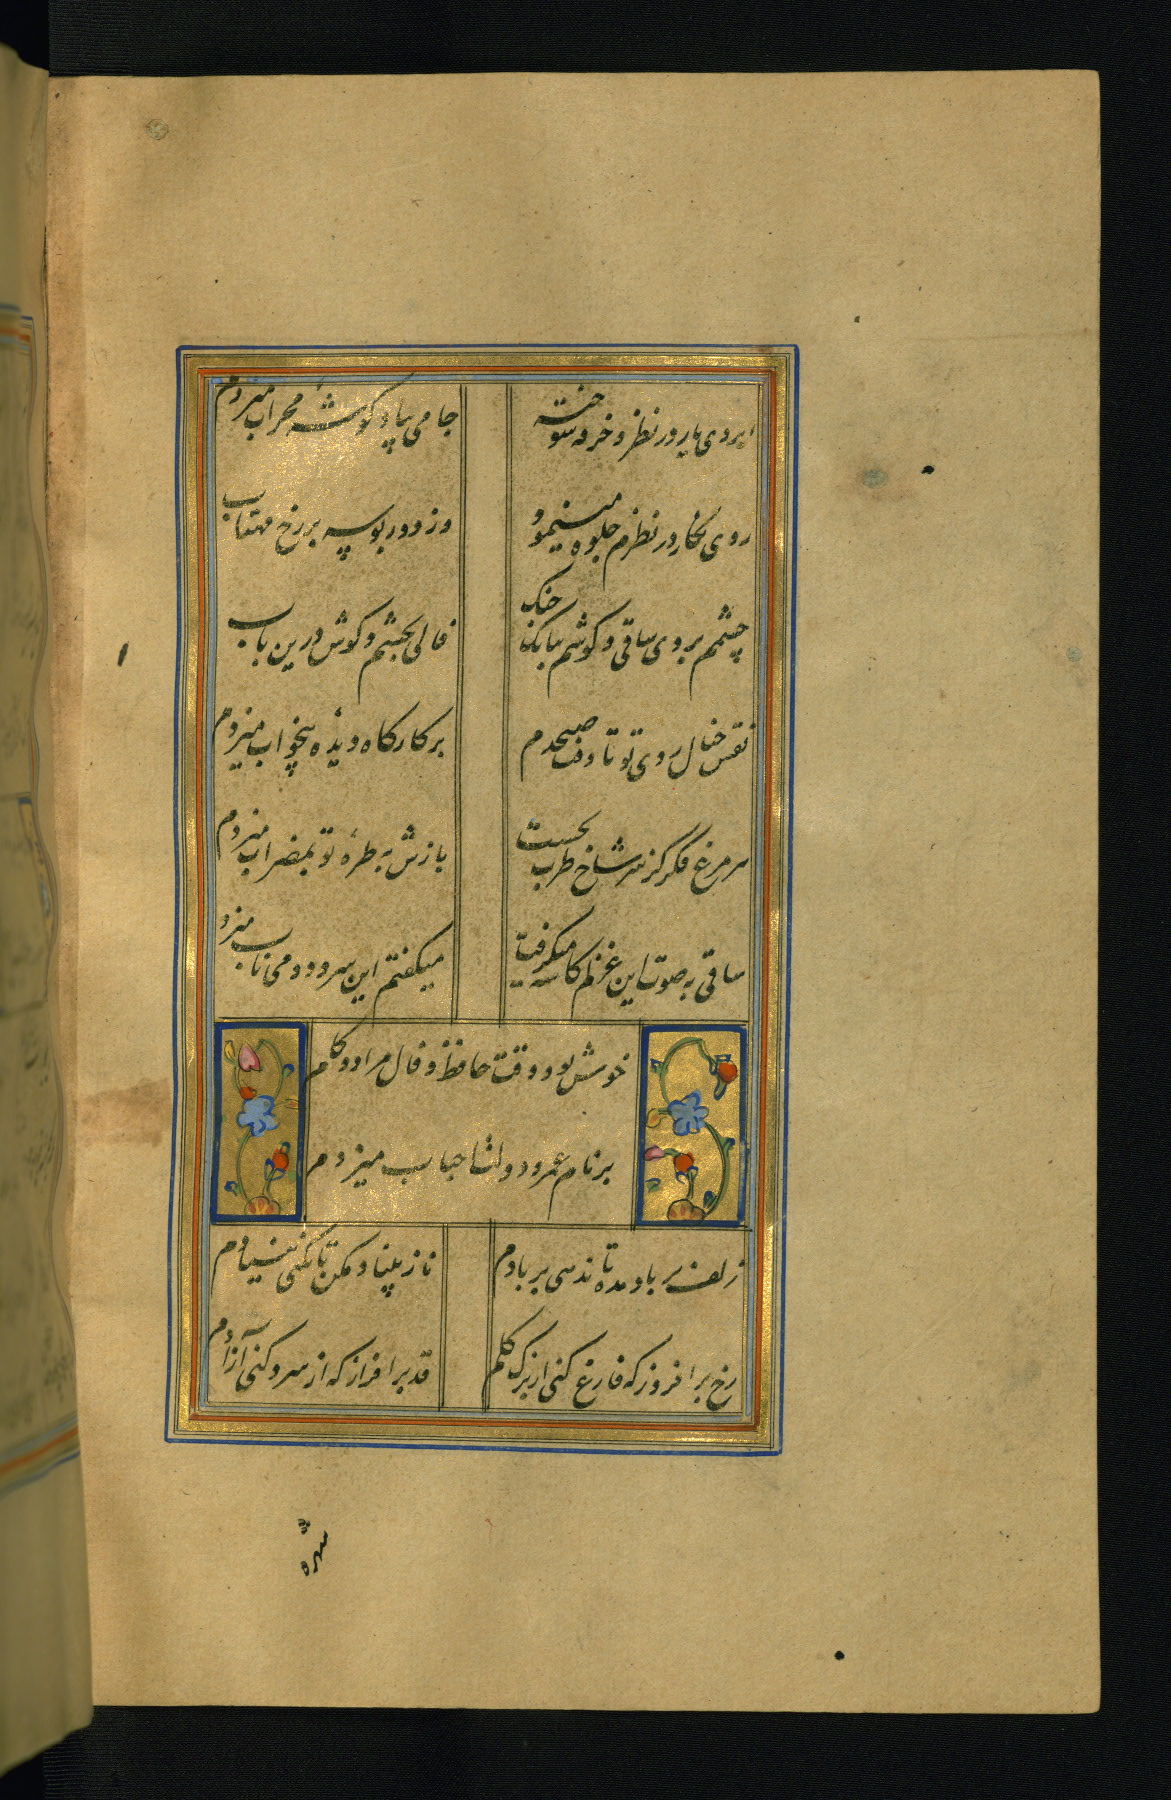 ابروی یار در نظر و خرقه سوخته
جامی بیاد گوشهٔ محراب میزدم
روی نگار در نظرم جلوه مینمود
وز دور بوسه بر رخ مهتاب
چشمم بروی ساقی و گوشم ببانک چنک
فالی بچشم و گوش درین باب
نقش خیال روی تو تا وقت صبحدم
بر کارکاه دیده بیخواب میزدم
هر مرغ فکر کز سر شاخ طرب بجست
بازش به طرهٔ تو بمضراب میزدم
ساقی به صوت این غزلم کاسه میکرفت
میکفتم این سرود و می ناب میزد
خوش بود وقت حافظ و فال مراد و کام
بر نام عمر و دولت احباب میزدم
زلف بر باد مده تا ندهی بر بادم
ناز بنیاد مکن تا نکنی بنیادم
رخ برافروز که فارغ کنی از برک کلم
قد برافراز که از سرو کنی آزادم
شهره